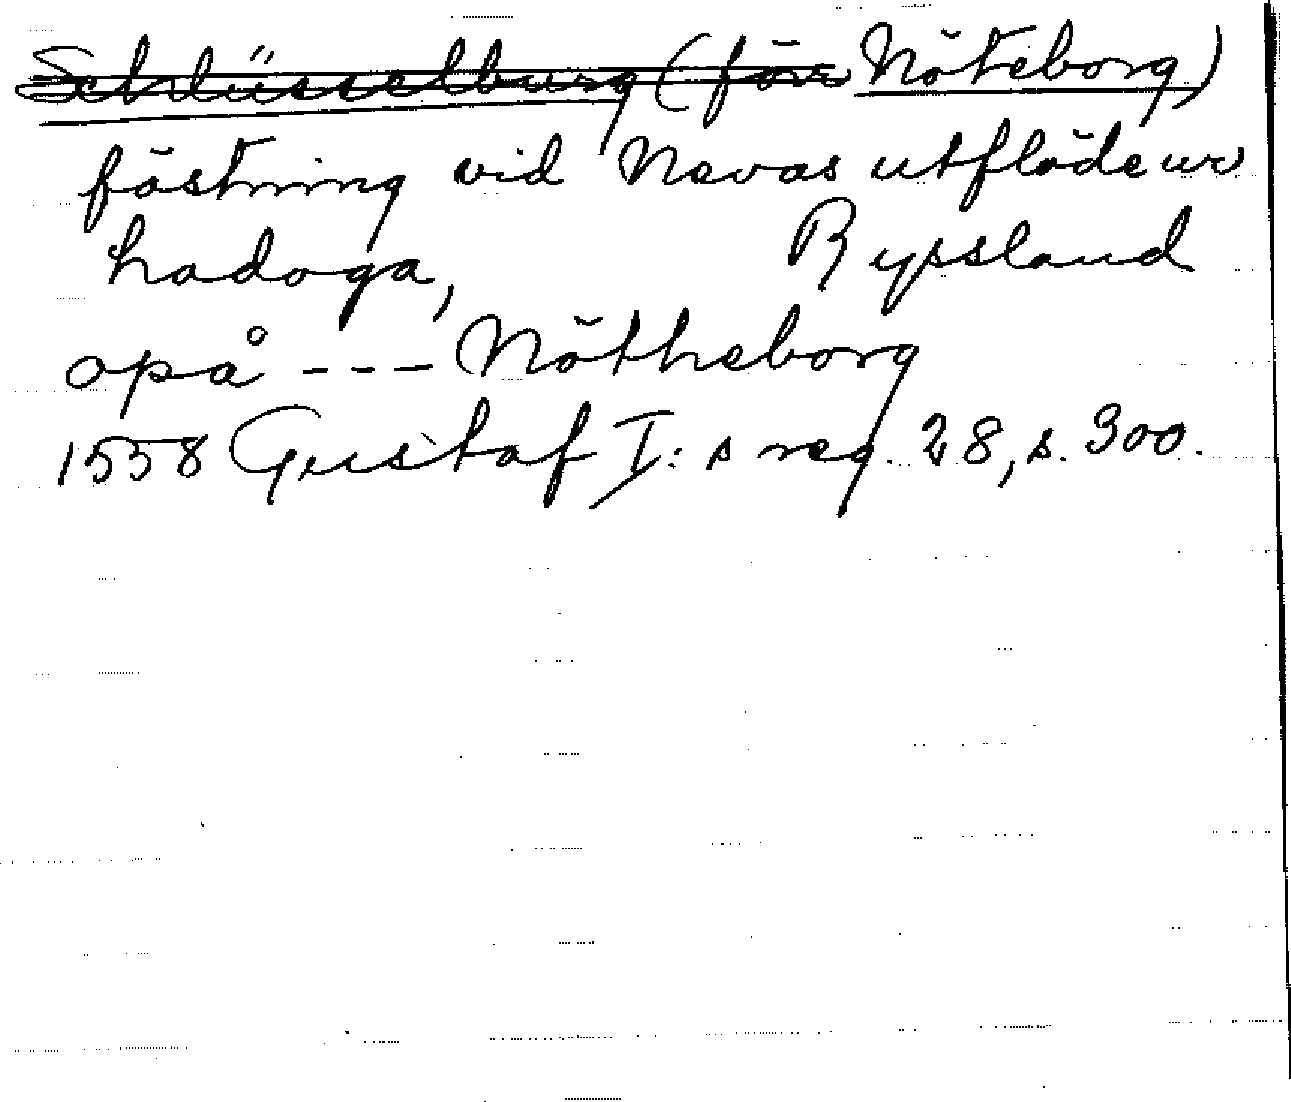 Schlüsselburg (förr Nöteborg)
fästning vid Nevas utflöde ur
Ladoga, Ryssland
opå --- Nötheborg
1558 Gustaf I:s reg. 28, s. 300.